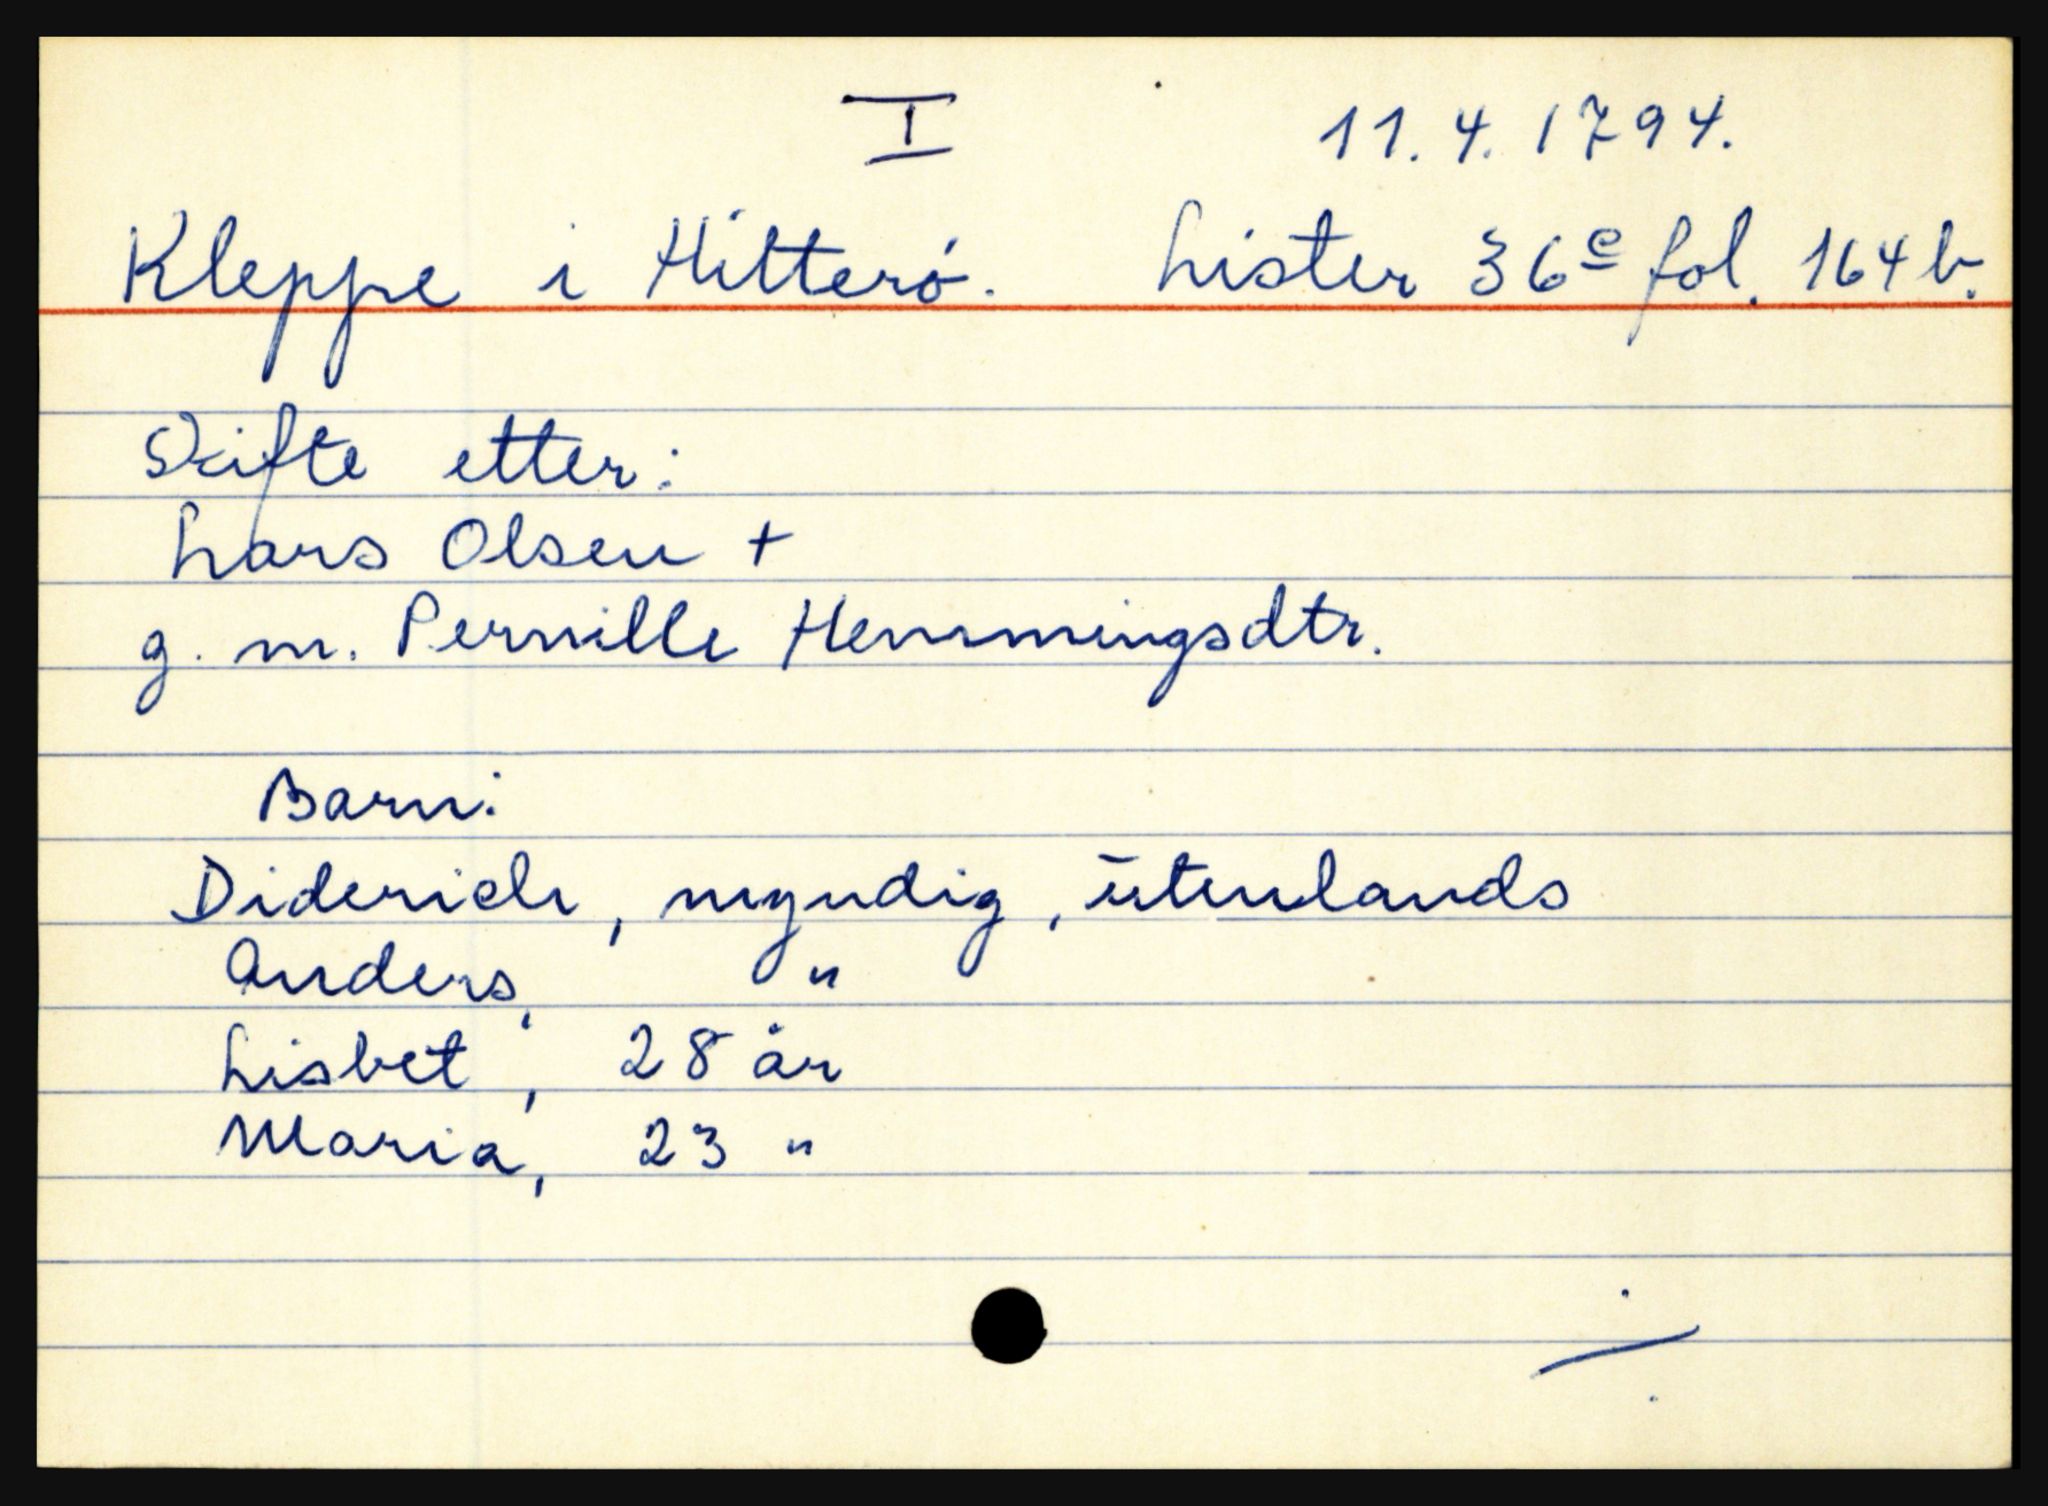 I 11.4.1794.
Kleppe i Hitterö. Lister 36e fol. 164b.
Skifte etter:
Lars Olsen +
g. m. Pernille Hemmingsdtr.
Barn:
Diderich, myndig, utenlands
Anders, "
Lisbet, 28 år
Maria, 23 "